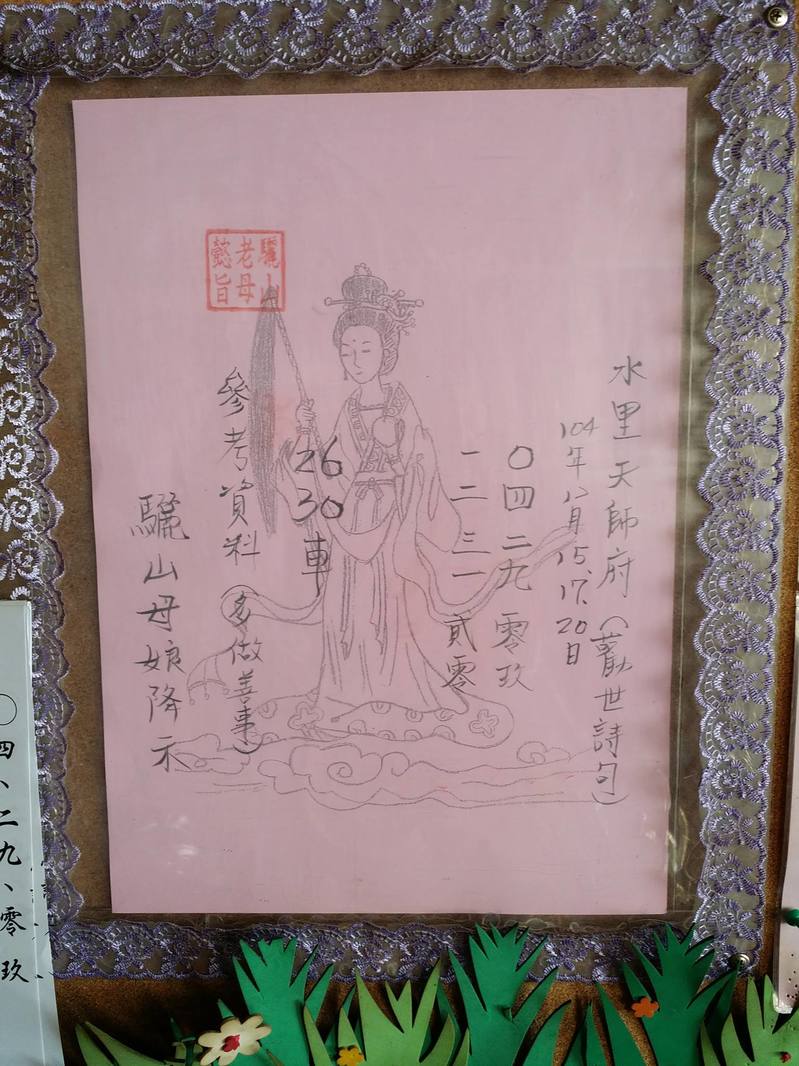 水里天師府(勸世詩句)
104年八月15.17.20日
〇四二九零玖
一二三一貳零
26
30
車
參考資料(多做善事)
驪山母娘降示
驪山
老母
懿旨
〇四、二九、零玖